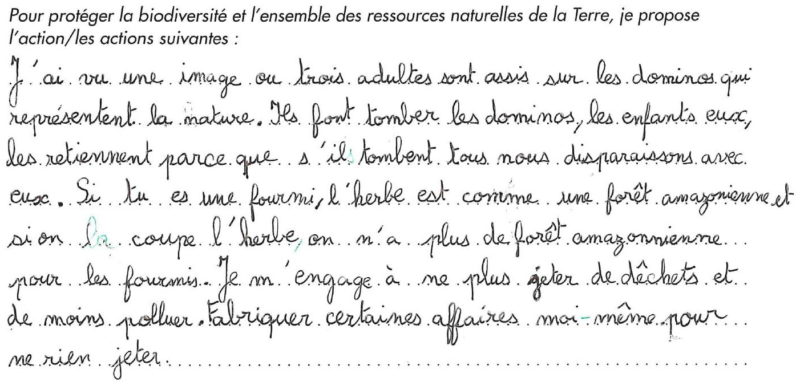 Pour protéger la biodiversité et l'ensemble des ressources naturelles de la Terre, je propose
l'action/les actions suivantes :
J'ai vu une image ou trois adultes sont assis sur les dominos qui
représentent la nature. Ils font tomber les dominos, les enfants eux,
les retiennent parce que s'ils tombent tous nous disparaissons avec
eux. Si tu es une fourmi, l'herbe est comme une forêt amazonienne et
si on la coupe l'herbe, on n'a plus de forêt amazonnienne
pour les fourmis. Je m'engage à ne plus jeter de dêchets et
de moins polluer. Fabriquer certaines affaires moi-même pour
ne rien jeter.